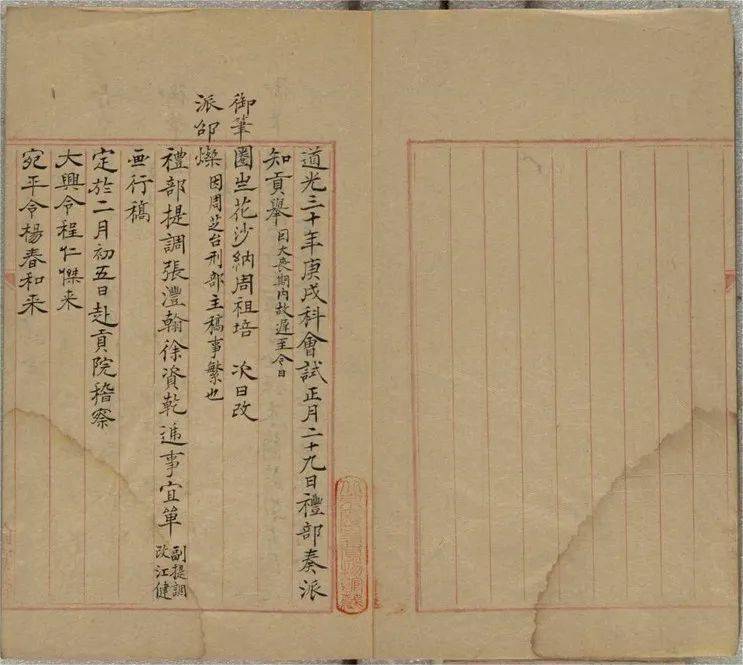 道光三十年庚戌科會試正月二十九日禮部奏派
知貢舉因大喪期內故遲至今日
御筆圈出花沙納周祖培 次日改
派邵燦因周芝台刑部主稿事繁也
禮部提調張灃翰徐資乾遞事宜單副提調改江健
画行稿
定於二月初五日赴貢院稽察
大興令程仁傑来
宛平令楊春和来